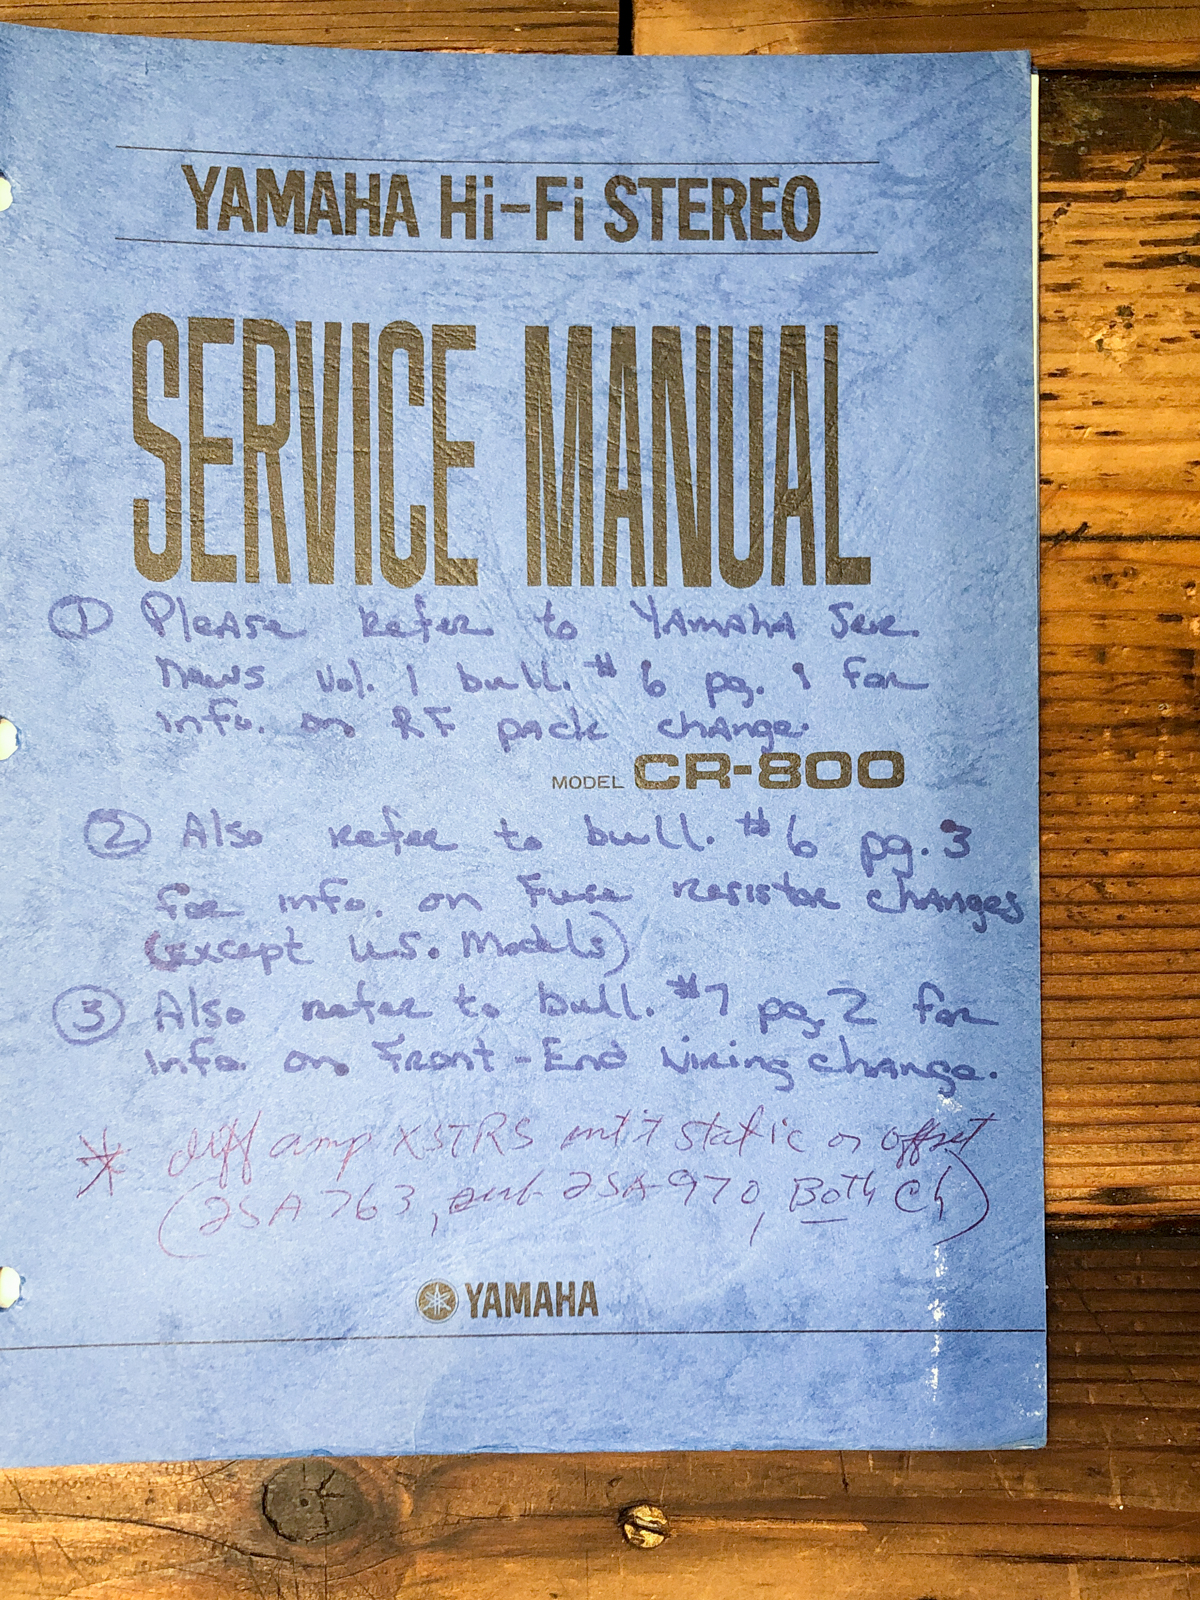 YAMAHA Hi-Fi STEREO
SERVICE MANUAL
① Please Refer to YAMAHA Ser.
News Vol. 1 bull. #6 pg. 1 for
info. on RF pack change.
MODEL CR-800
② Also refer to bull. #6 pg. 3
for info. on Fuse resistor changes
(except U.S. Models)
③ Also refer to bull. #7 pg. 2 for
info. on Front-End wiring change.
* diff amp XSTRS static or offset
(2SA763, sub 2SA970, Both Ch)
YAMAHA